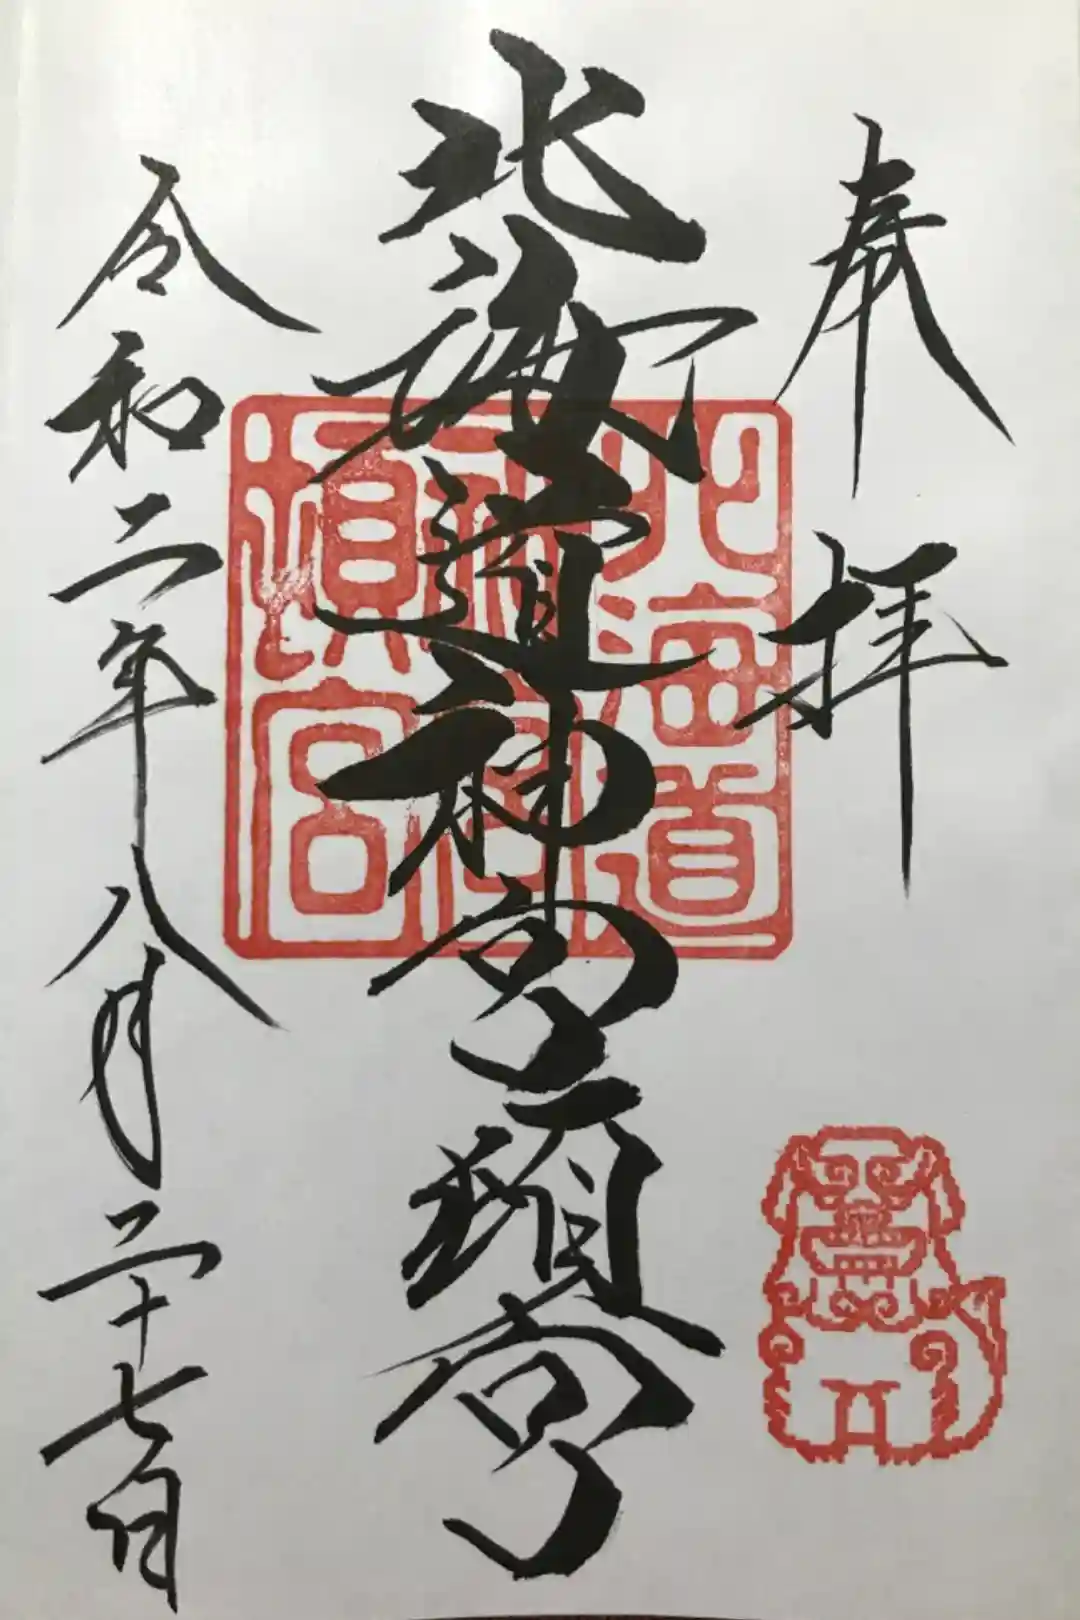 奉拝
北海道神宮頓宮
令和二年八月二十七日
北海道
神宮
頓宮